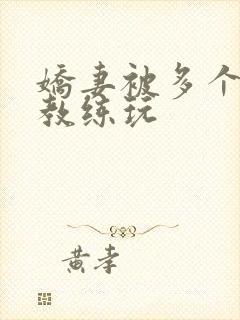 嬌妻被多个
教练玩
黄李